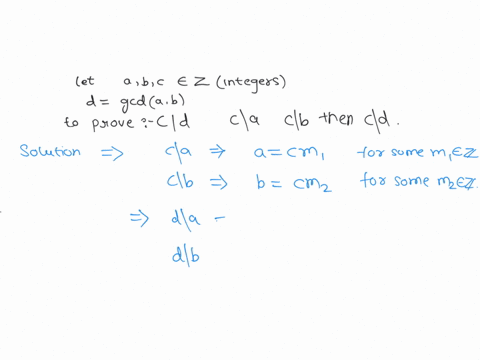 let a, b, c ∈ Z (integers)
d = gcd(a,b)
to prove :- C/d c/a c/b then c/d.
Solution ⇒ c/a ⇒ a = cm₁ for some m₁∈Z
c/b ⇒ b = cm₂ for some m₂∈Z.
⇒ d/a -
d/b